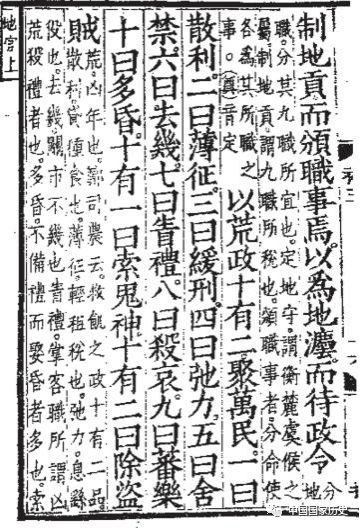 制地貢而頒職事焉。以為地灋。而待政令分地
職。分其九職所宜也。定地守。謂衡麓虞候之
屬。制地貢。謂九職所稅也。頒職事者。分命使
各為其所職之
事。奠音定
以荒政十有二。聚萬民。一曰
散利。二曰薄征。三曰緩刑。四曰弛力。五曰舍
禁。六曰去幾。七曰眚禮。八曰殺哀。九曰蕃樂
十曰多昏。十有一曰索鬼神。十有二曰除盜
賊荒。凶年也。鄭司農云。救飢之政十有二品。
散利。貸種食也。薄征。輕租稅也。弛力。息繇
役也。去幾。關市不幾也。眚禮。掌客職所謂凶
荒殺禮者也。多昏。不備禮而娶昏者多也。索
地官上
中国国家历史